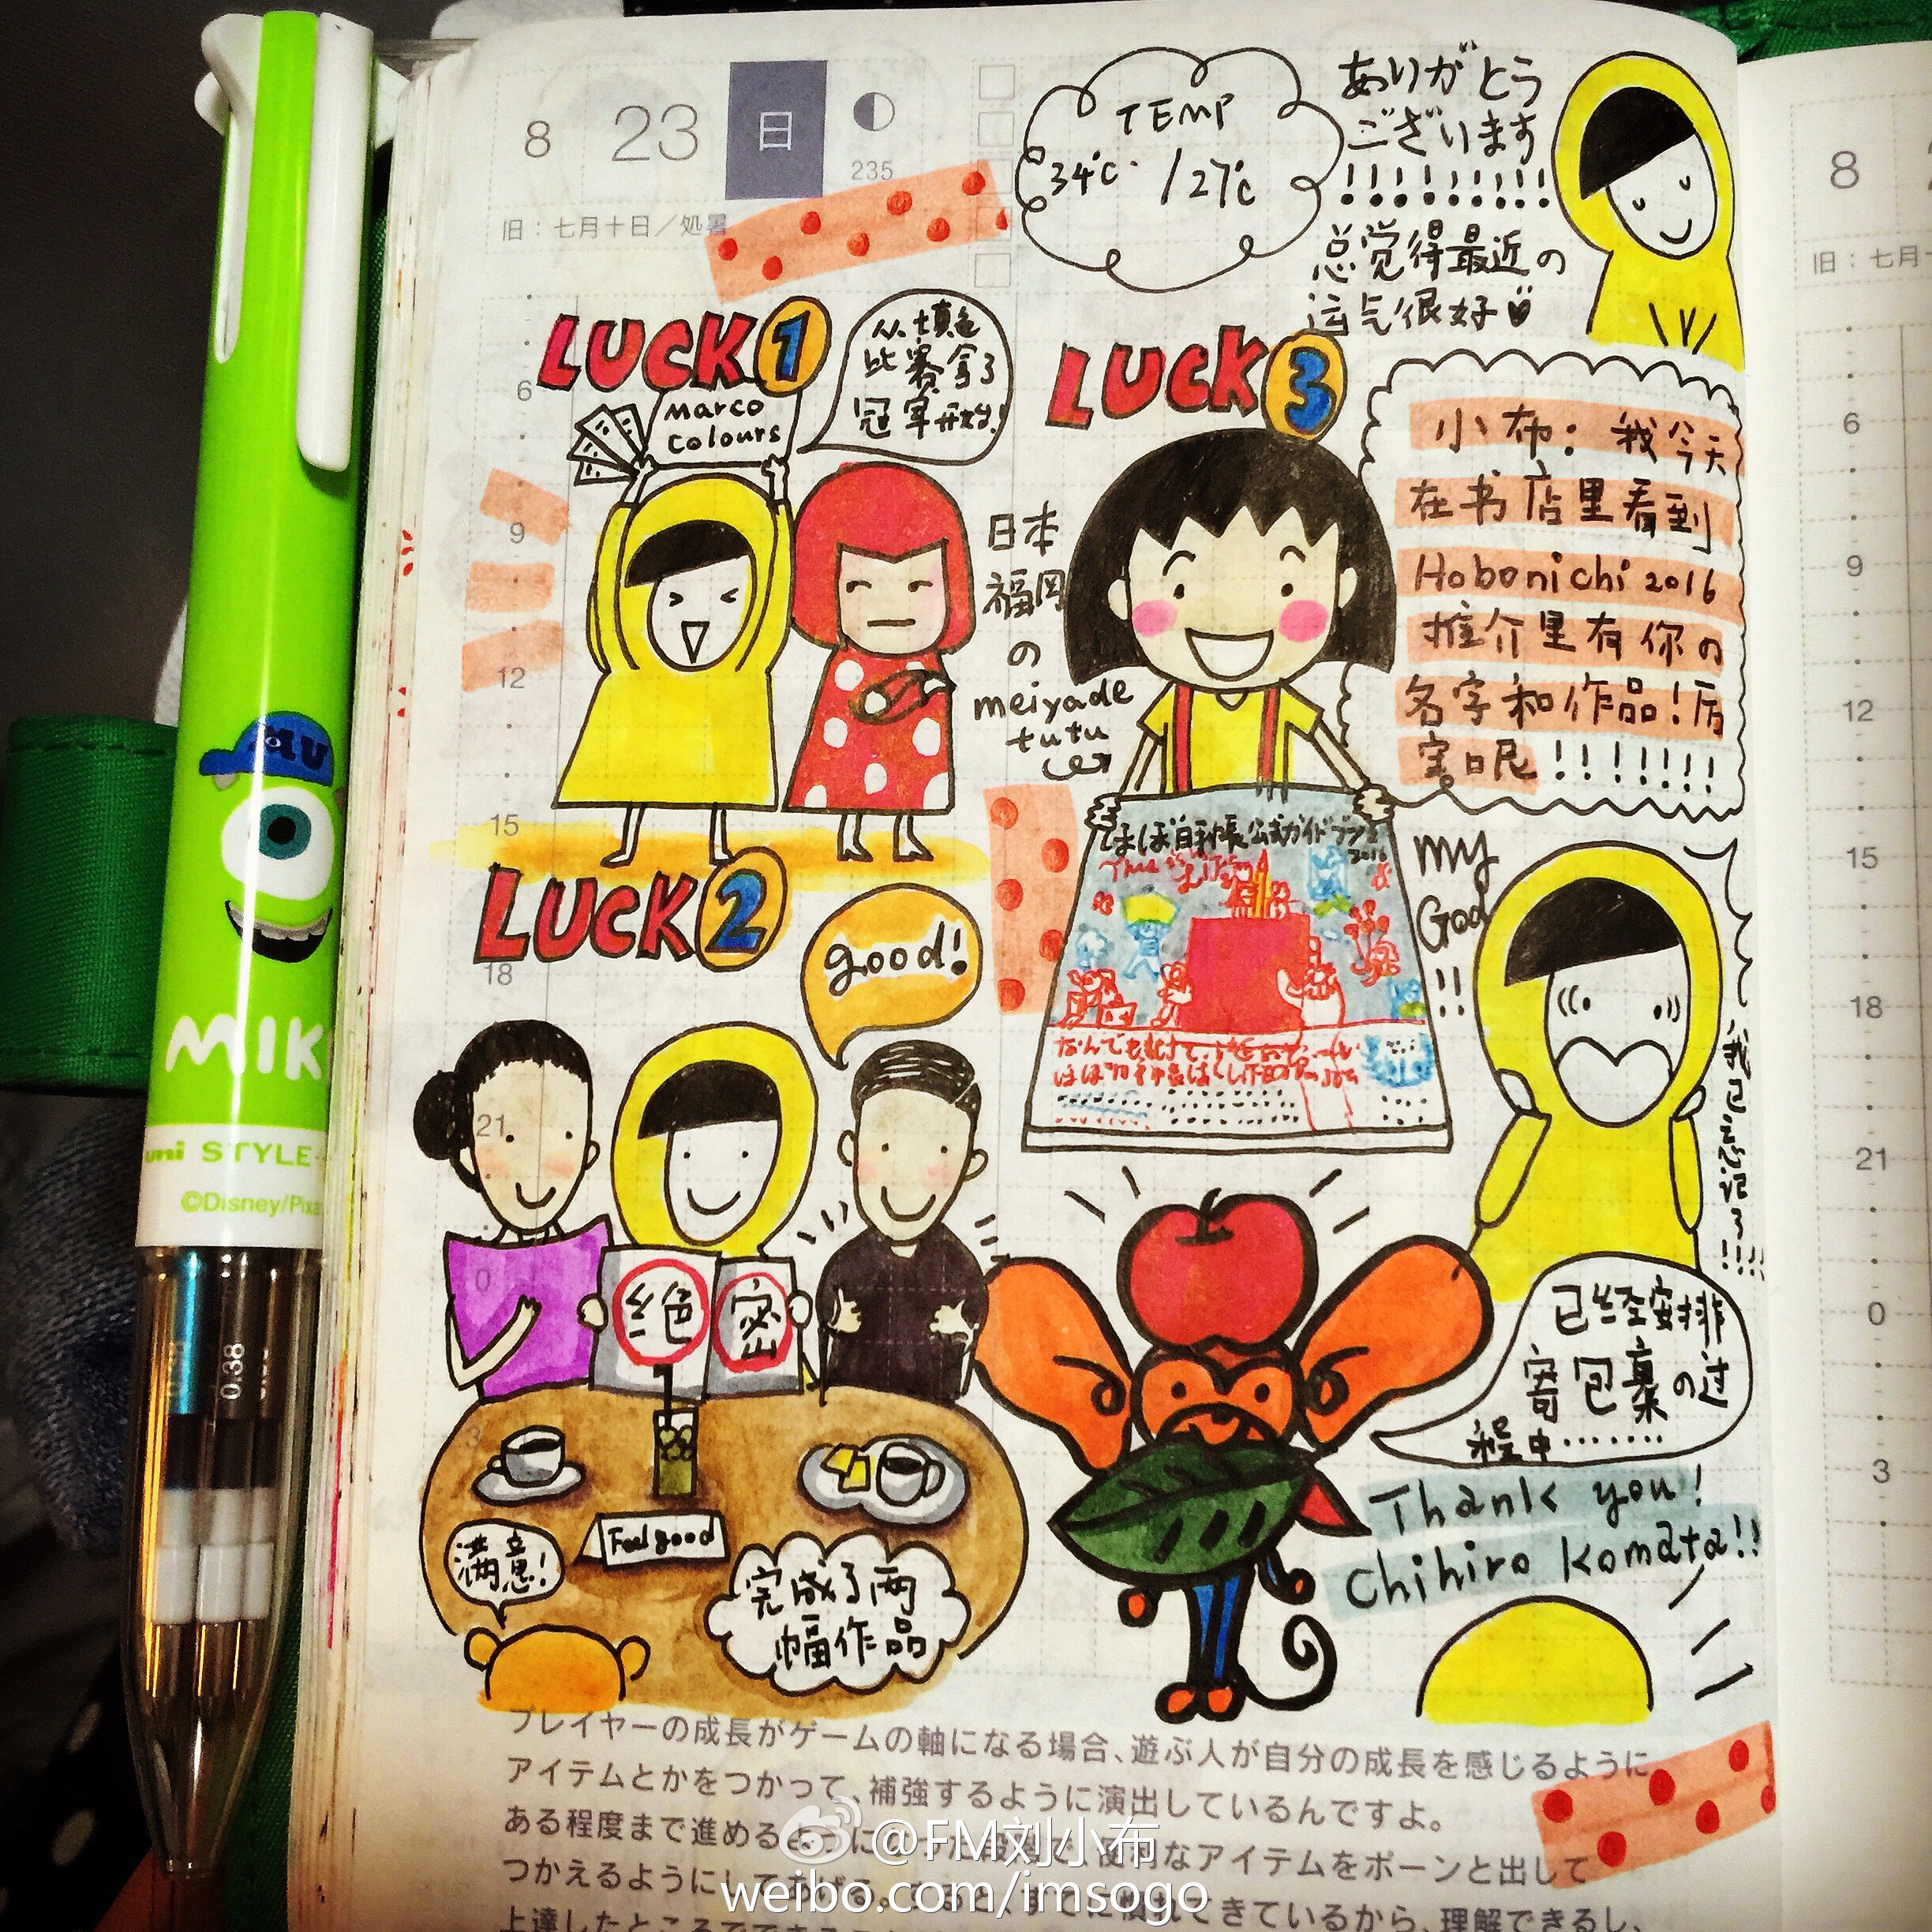 8 23 日
235
旧：七月十日／処暑
TEMP
34℃ / 27℃
ありがとう
ございます
!!!!!!!!!
总觉得最近の
运气很好
LUCK 1
从填色
比赛拿了
冠军开始!
Marco
colours
日本
福岡
の
meiyade
tutu
LUCK 3
小布：我今天
在书店里看到
Hobonichi 2016
推介里有你の
名字和作品！厉
害呢!!!!!!!
ほぼ日手帳公式ガイドブック
2016
My
God
!!
LUCK 2
good!
绝 密
Feel good
满意!
完成了两
幅作品
已经安排
寄包裹の过
程中·······
Thank you!
Chihiro Komata!!
プレイヤーの成長がゲームの軸になる場合、遊ぶ人が自分の成長を感じるように
アイテムとかをつかって、補強するように演出しているんですよ。
ある程度まで進めるように
段階で、便利なアイテムをポーンと出して
つかえるようにしてあげる。
てきているから、理解できるし、
6
9
12
15
18
21
0
3
8
旧：七月
6
9
12
15
18
21
0
3
MU
MIK
uni STYLE
©Disney/Pixa
0.38
@FM刘小布
weibo.com/imsogo